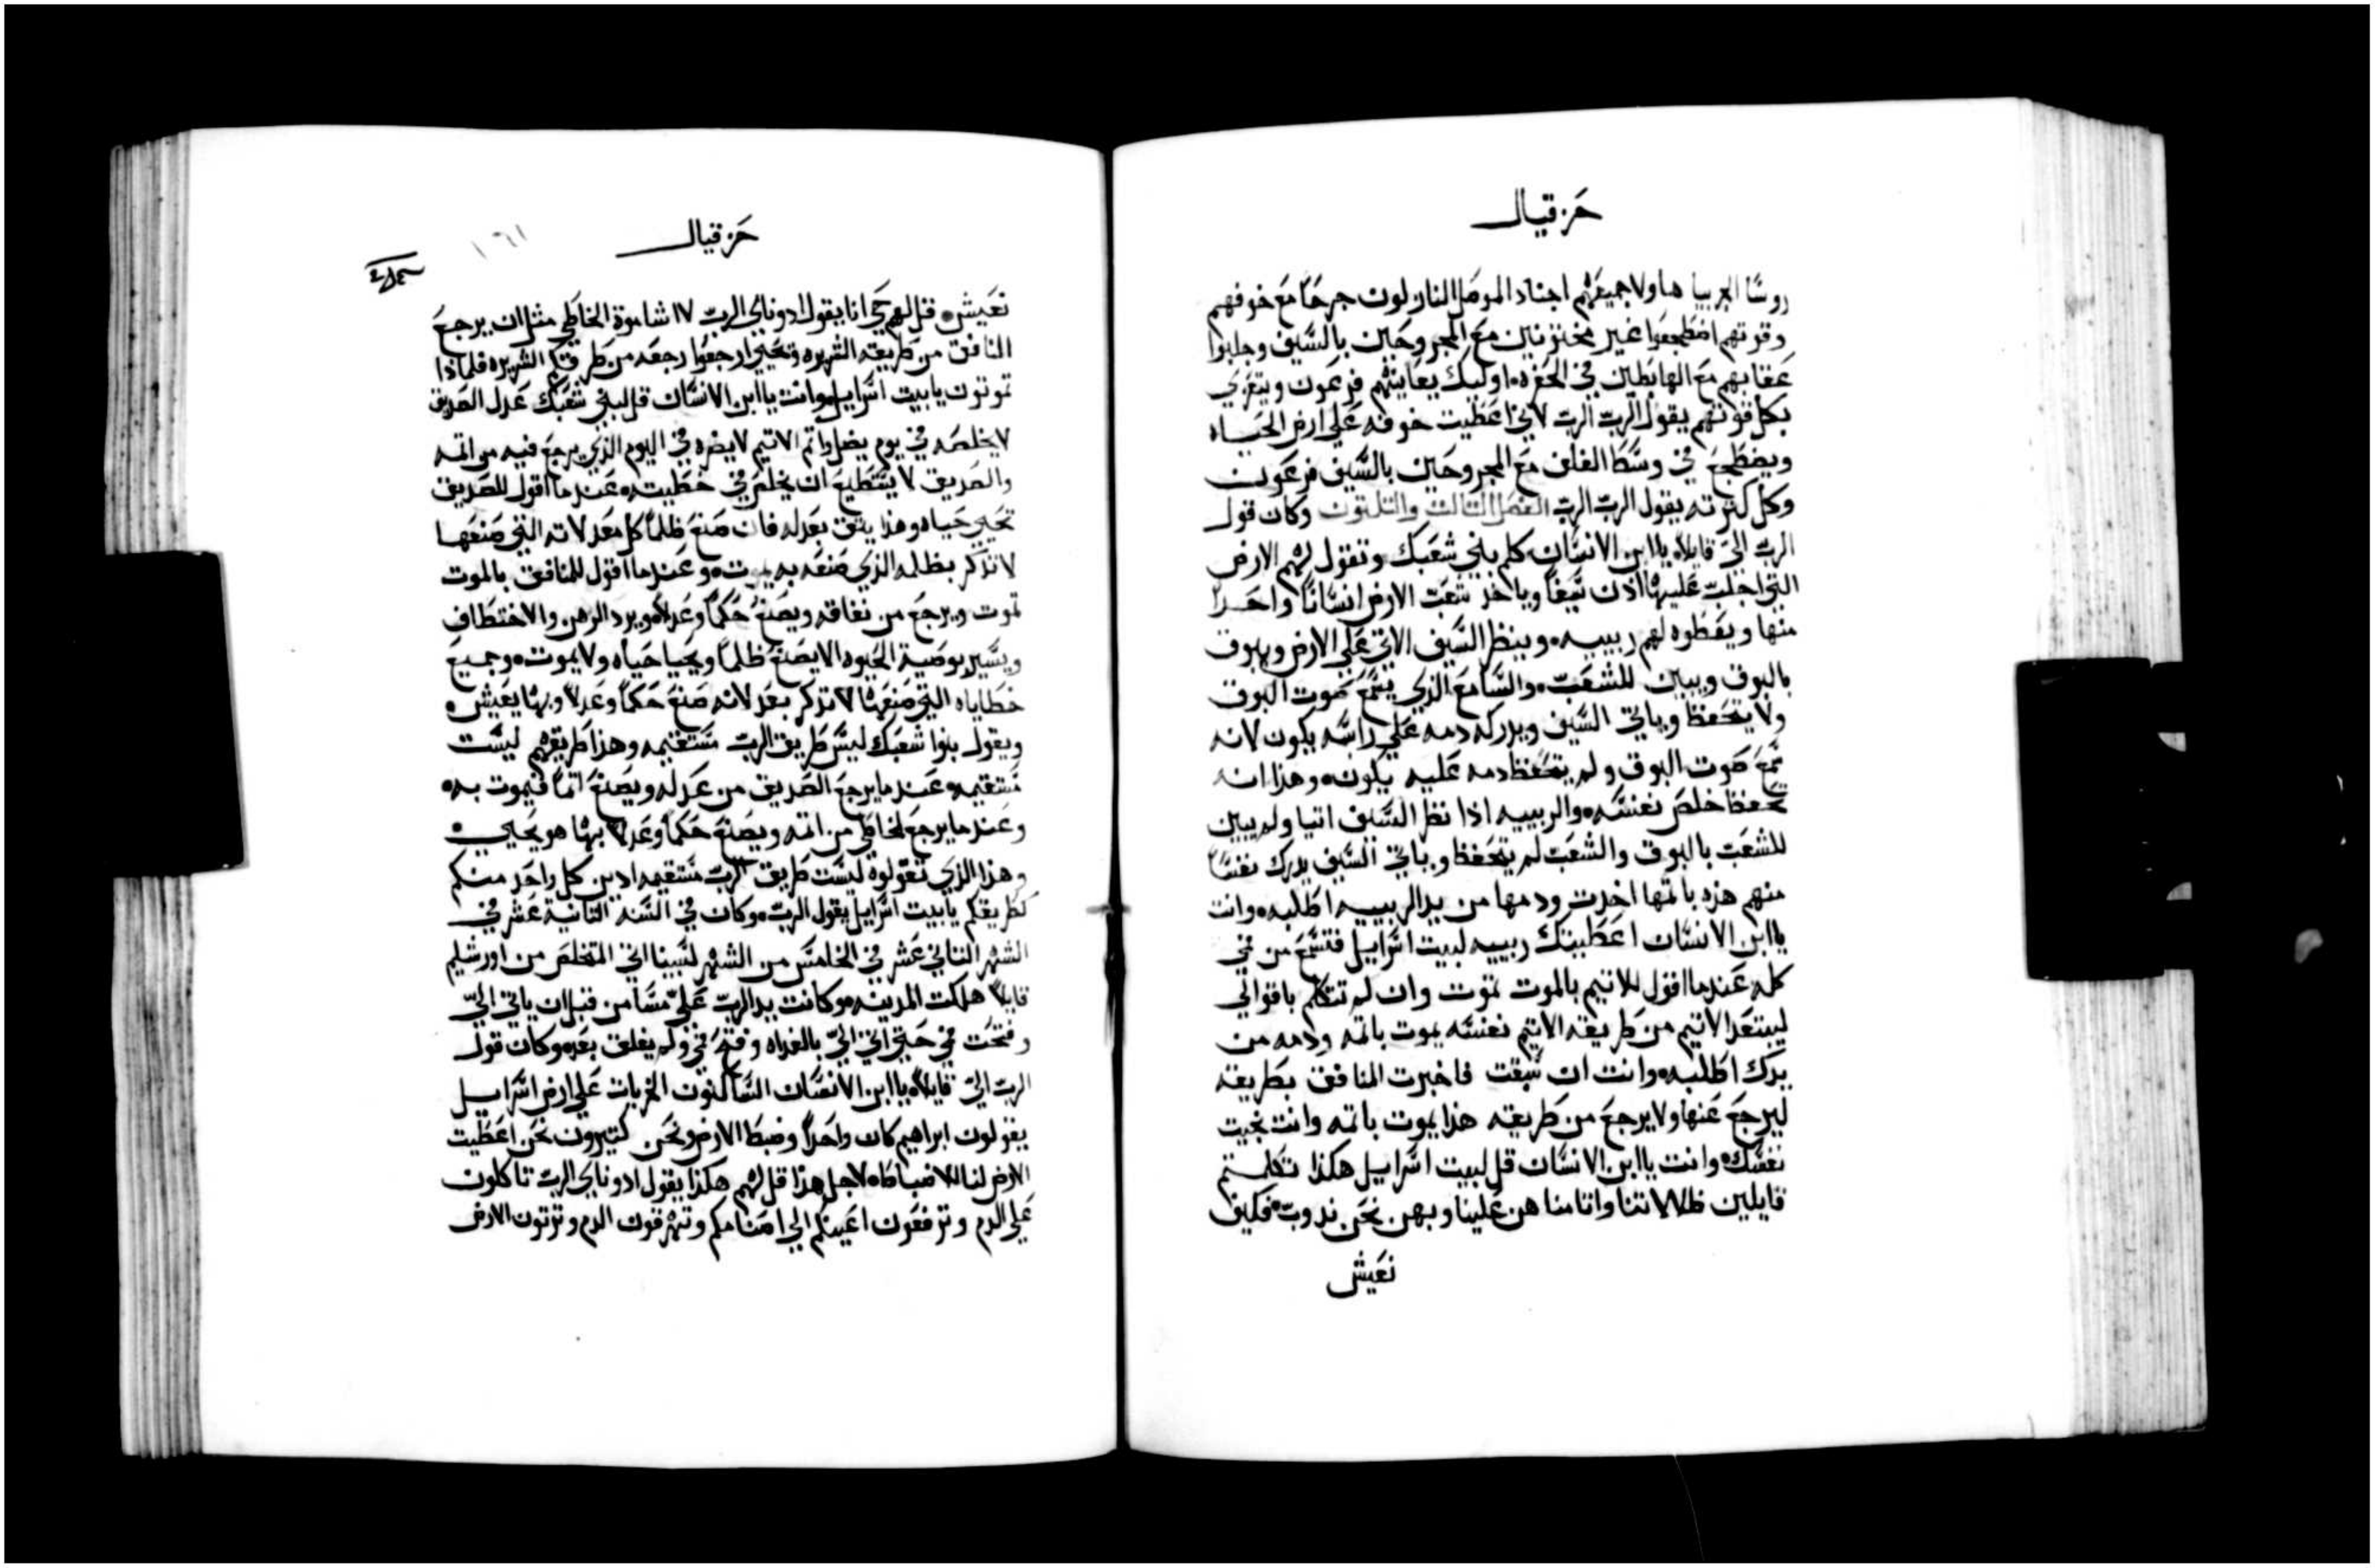 حزقيال
روسا الجربيا هاولا جميعهم اجناد الموصل النازلون جرحا مع خوفهم
وقوتهم اضطجعوا غير مختونين مع المجروحين بالسيف وجلبوا
عقابهم مع الهابطين في الحفره اوليك يعاينهم فرعون ويتعزي
بكل قوتهم يقول الرب الرب لاني اعطيت خوفه علي ارض الحياه
ويضطجع في وسط الغلف مع المجروحين بالسيف فرعون
وكل كثرته يقول الرب الرب الفصل الثالث والثلثون وكان قول
الرب الي قايلا يا ابن الانسان كلم بني شعبك وتقول لهم الارض
التي اجلب عليها اذن سيفا وياخذ شعب الارض انسانا واحدا
منها ويعطوه لهم ربييه وينظر السيف الاتي علي الارض ويبوق
بالبوق ويبين للشعب والسامع الذي يسمع صوت البوق
ولا يتحفظ وياتي السيف ويدركه دمه علي راسه يكون لانه
سمع صوت البوق ولم يتحفظ دمه عليه يكون وهذا انه
تحفظ خلص نفسه والربييه اذا نظر السيف اتيا ولم يبين
للشعب بالبوق والشعب لم يتحفظ وياتي السيف يدرك نفسا
منهم هذه باثمها اخدت ودمها من يد الربييه اطلبه وانت
يا ابن الانسان اعطيتك ربييه لبيت اسراييل فتسمع من في
كلمه عندما اقول للاثيم بالموت تموت وان لم تتكلم باقوالي
ليبتعد الاثيم من طريقه الاثيم نفسه يموت باثمه ودمه من
يدك اطلبه وانت ان سبقت فاخبرت المنافق بطريقه
ليرجع عنها ولا يرجع من طريقه هذا يموت باثمه وانت نجيت
نفسك وانت يا ابن الانسان قل لبيت اسراييل هكذا تكلمتم
قايلين ظلالاتنا واثامنا هن علينا وبهن نحن ندوب فكيف
نعيش
حزقيال
١٦١
نعيش قل لهم حي انا يقول ادوناي الرب لا اشا موة الخاطي مثل ان يرجع
المنافق من طريقه الشريره وتحيي ارجعوا رجعه من طرقكم الشريره فلماذا
تموتون يا بيت اسراييل وانت يا ابن الانسان قل لبني شعبك عدل الصديق
لا يخلصه في يوم يضل واثم الاثيم لا يضره في اليوم الذي يرجع فيه من اثمه
والصديق لا يستطيع ان يخلص في خطيته عندما اقول للصديق
تحيي حياه وهذا يثق بعدله فان صنع ظلما كل معدلاته التي صنعها
لا تذكر بظلمه الذي صنعه به يموت وعندما اقول للمنافق بالموت
تموت ويرجع من نفاقه ويصنع حكما وعدلا ويرد الرهن والاختطاف
ويسير بوصية الحيوه الا يصنع ظلما ويحيا حياه ولا يموت وجميع
خطاياه التي صنعها لا تذكر بعد لانه صنع حكما وعدلا وبها يعيش
ويقول بنوا شعبك ليس طريق الرب مستقيمه وهذا طريقهم ليست
مستقيمه عندما يرجع الصديق من عدله ويصنع اثما فيموت به
وعندما يرجع الخاطي من اثمه ويصنع حكما وعدلا بها هو يحيي
وهذا الذي تقولوه ليست طريق الرب مستقيمه ادين كل واحد منكم
كطريقكم يا بيت اسراييل يقول الرب وكان في السنه الثانية عشر في
الشهر الثاني عشر في الخامس من الشهر لسبينا اتي المتخلص من اورشليم
قايلا هلكت المدينه وكانت يد الرب علي مسا من قبل ان ياتي الي
وفتحت في حتي اتي الي بالغداه وفتح في ولم يغلق بعد وكان قول
الرب الي قايلا يا ابن الانسان الساكنون الخربات علي ارض اسراييل
يقولون ابراهيم كان واحدا وضبط الارض ونحن كثيرون نحن اعطيت
الارض لنا للاضباطه لاجل هذا قل لهم هكذا يقول ادوناي الرب تاكلون
علي الدم وترفعون اعينكم الي اصنامكم وتهرقون الدم وترثون الارض